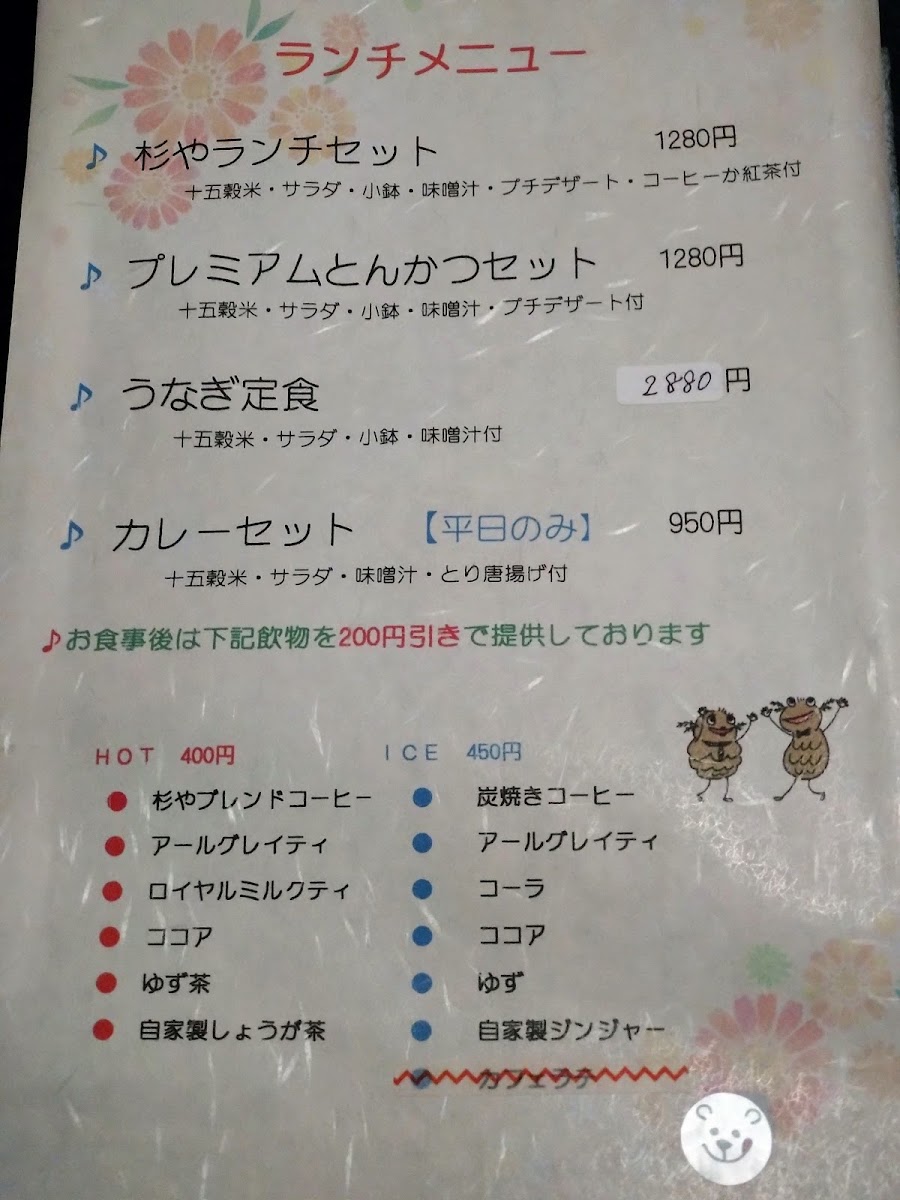 ランチメニュー
♪ 杉やランチセット 1280円
十五穀米・サラダ・小鉢・味噌汁・プチデザート・コーヒーか紅茶付
♪ プレミアムとんかつセット 1280円
十五穀米・サラダ・小鉢・味噌汁・プチデザート付
♪ うなぎ定食 2880円
十五穀米・サラダ・小鉢・味噌汁付
♪ カレーセット 【平日のみ】 950円
十五穀米・サラダ・味噌汁・とり唐揚げ付
♪お食事後は下記飲物を200円引きで提供しております
HOT 400円 ICE 450円
● 杉やブレンドコーヒー ● 炭焼きコーヒー
● アールグレイティ ● アールグレイティ
● ロイヤルミルクティ ● コーラ
● ココア ● ココア
● ゆず茶 ● ゆず
● 自家製しょうが茶 ● 自家製ジンジャー
● カフェラテ